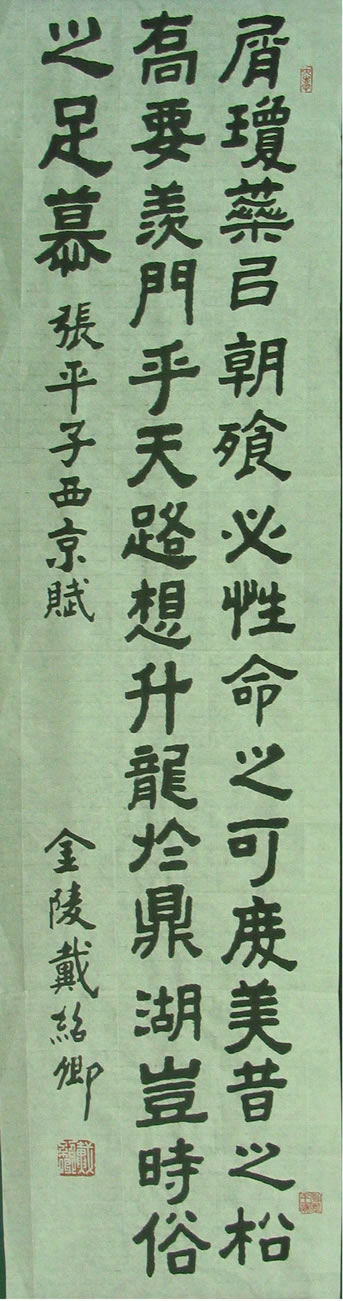 屑瓊蘂㠯朝飱必性命之可度美昔之松
喬要羨門乎天路想升龍於鼎湖豈時俗
之足慕 張平子西京賦 金陵戴紹卿